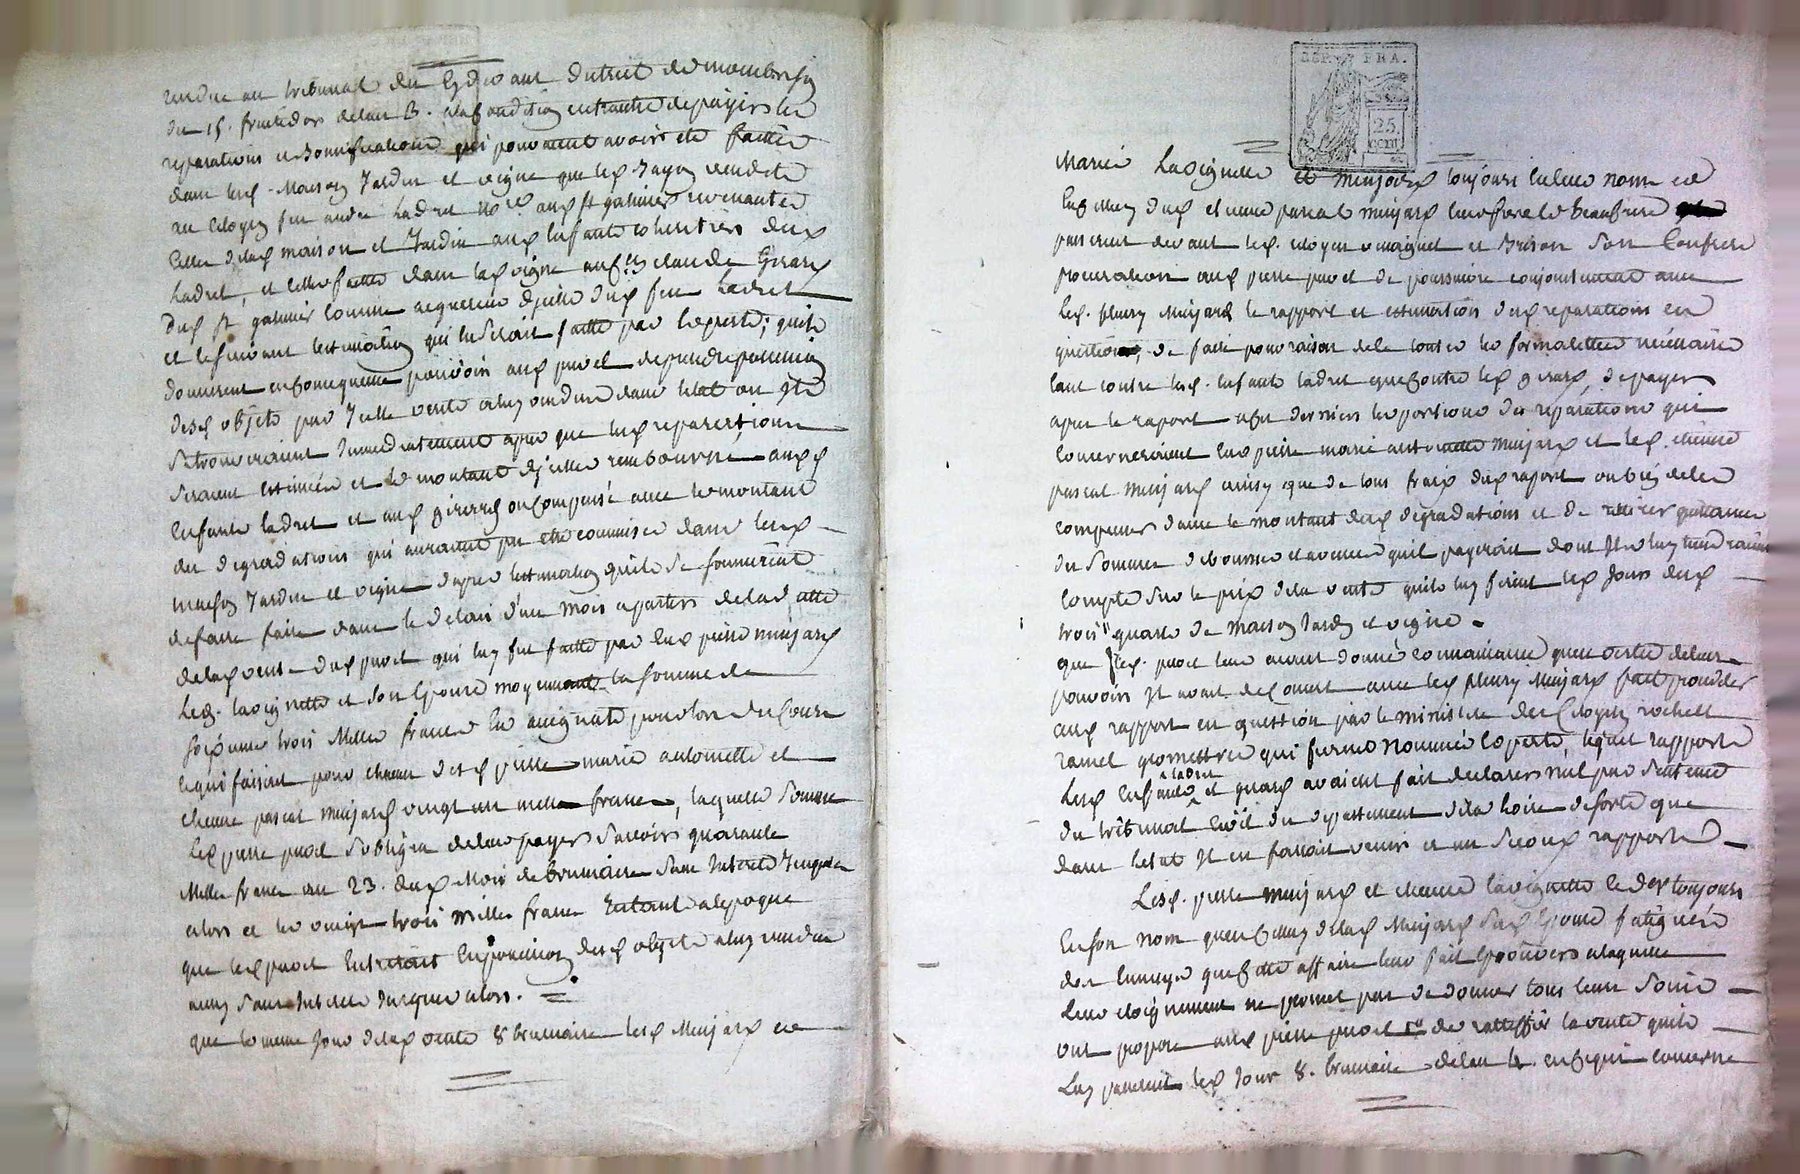 rendue au tribunal du cydevant district de montbrison
du 15. fructidor de lan 3. a la condition entrautre de payer les
reparations et bonnifications qui pouvoient avoir été faittes
dans lesd. maison Jardin et vigne que led. Jayon vendit
au Citoyen feu andré Ladret aud. st galmier revenantes
Celles de lad. maison et Jardin aux enfants et heritiers dud.
Ladret, et celles faittes dans lad. vigne au Claude Girard
dud. st galmier comme acquereur dicelle dud. feu Ladret
et ce suivant lestimation qui en seroit faitte par experts; quils
donnerent en consequence pouvoir aud. puvel de prendre possession
desd. objets par Jcelle vente a luy vendue dans letat ou Jls
se trouveroient Immediatement apres que lesd. reparations
seroient estimées et le montant dicelles remboursé auxd.
enfants ladret et aud. girard ou compensé avec le montant
des degradations qui auroient pu etre commises dans lesd.
maison Jardin et vigne dapres lestimation quils se soumirent
de faire faire dans le delais d'un mois a partir de lad. datte
de lad. vente dud. puvel qui luy fut faitte par led. pierre minjard
Led. lavignette et son Epouse moyennant la somme de
soixante trois Mille francs en assignats pour lors de Cours
ce qui faisoit pour chacun desd. pierre marie antoinette et
etienne pascal minjard vingt un mille francs, laquelle somme
led. pierre puvel sobligea de leur payer savoir quarante
Mille francs au 23. dud. mois de brumaire sans Interets Jusqua
alors et les vingt trois mille francs restant a lepoque
que led. puvel Entreroit en possession desd. objets a luy vendus
aussy sans Interets Jusque alors.
que le meme jour de lad. vente 8 brumaire lesd. Minjard et
REP. FRA.
25
cent.
Mariés Lavignette et minjard toujours en leur nom et
en celluy dud. etienne pascal minjard leur frere et beaufrere
passerent devant led. citoyen et Brison son Confrere
procuration aud. pierre puvel de poursuivre conjointement avec
led. fleury Minjard le rapport et estimation dud. reparations en
question, de faire pour raison de ce toutes les formalittés nécéssaires
tant contre lesd. enfants ladret que contre led. girard, de payer
apres le raport a ces derniers les portions des reparations qui
concerneroient lesd. pierre marie antoinette minjard et led. etienne
pascal minjard ainsy que de tous fraix dud. raport ou bien de les
compenser dans le montant desd. degradations et de retirer quittance
des sommes debourses et avances quil payeroit dont Jls luy tiendroient
Compte sur le prix de la vente quils luy firent led. Jour desd.
trois quarts de maison Jardin et vigne.
que led. puvel leur auroit donné connaissance quen vertu de leur
pouvoir Jl avoit de concert avec led. fleury Minjard fait proceder
aud. rapport en question par le ministere des Citoyen rochett
ramel geomettres qui furent nommés experts, lequel rapport
Lesd. enfants ladret et girard avoient fait declarer nul par sentence
du tribunal Civil du departement de la Loire de sorte que
dans letat Jl en faloit venir a un second rapport
Lesd. pierre minjard et etienne lavignette le der toujours
en son nom quen celluy de lad. Minjard sad. epouse fatigués
des ennuys que cette affaire leur fait eprouver a laquelle
Leur eloignement ne permet pas de donner tous leurs soins
ont proposé aud. pierre puvel de rattiffier la vente quils
Luy passerent led. Jour 8. brumaire de lan en ce qui concerne